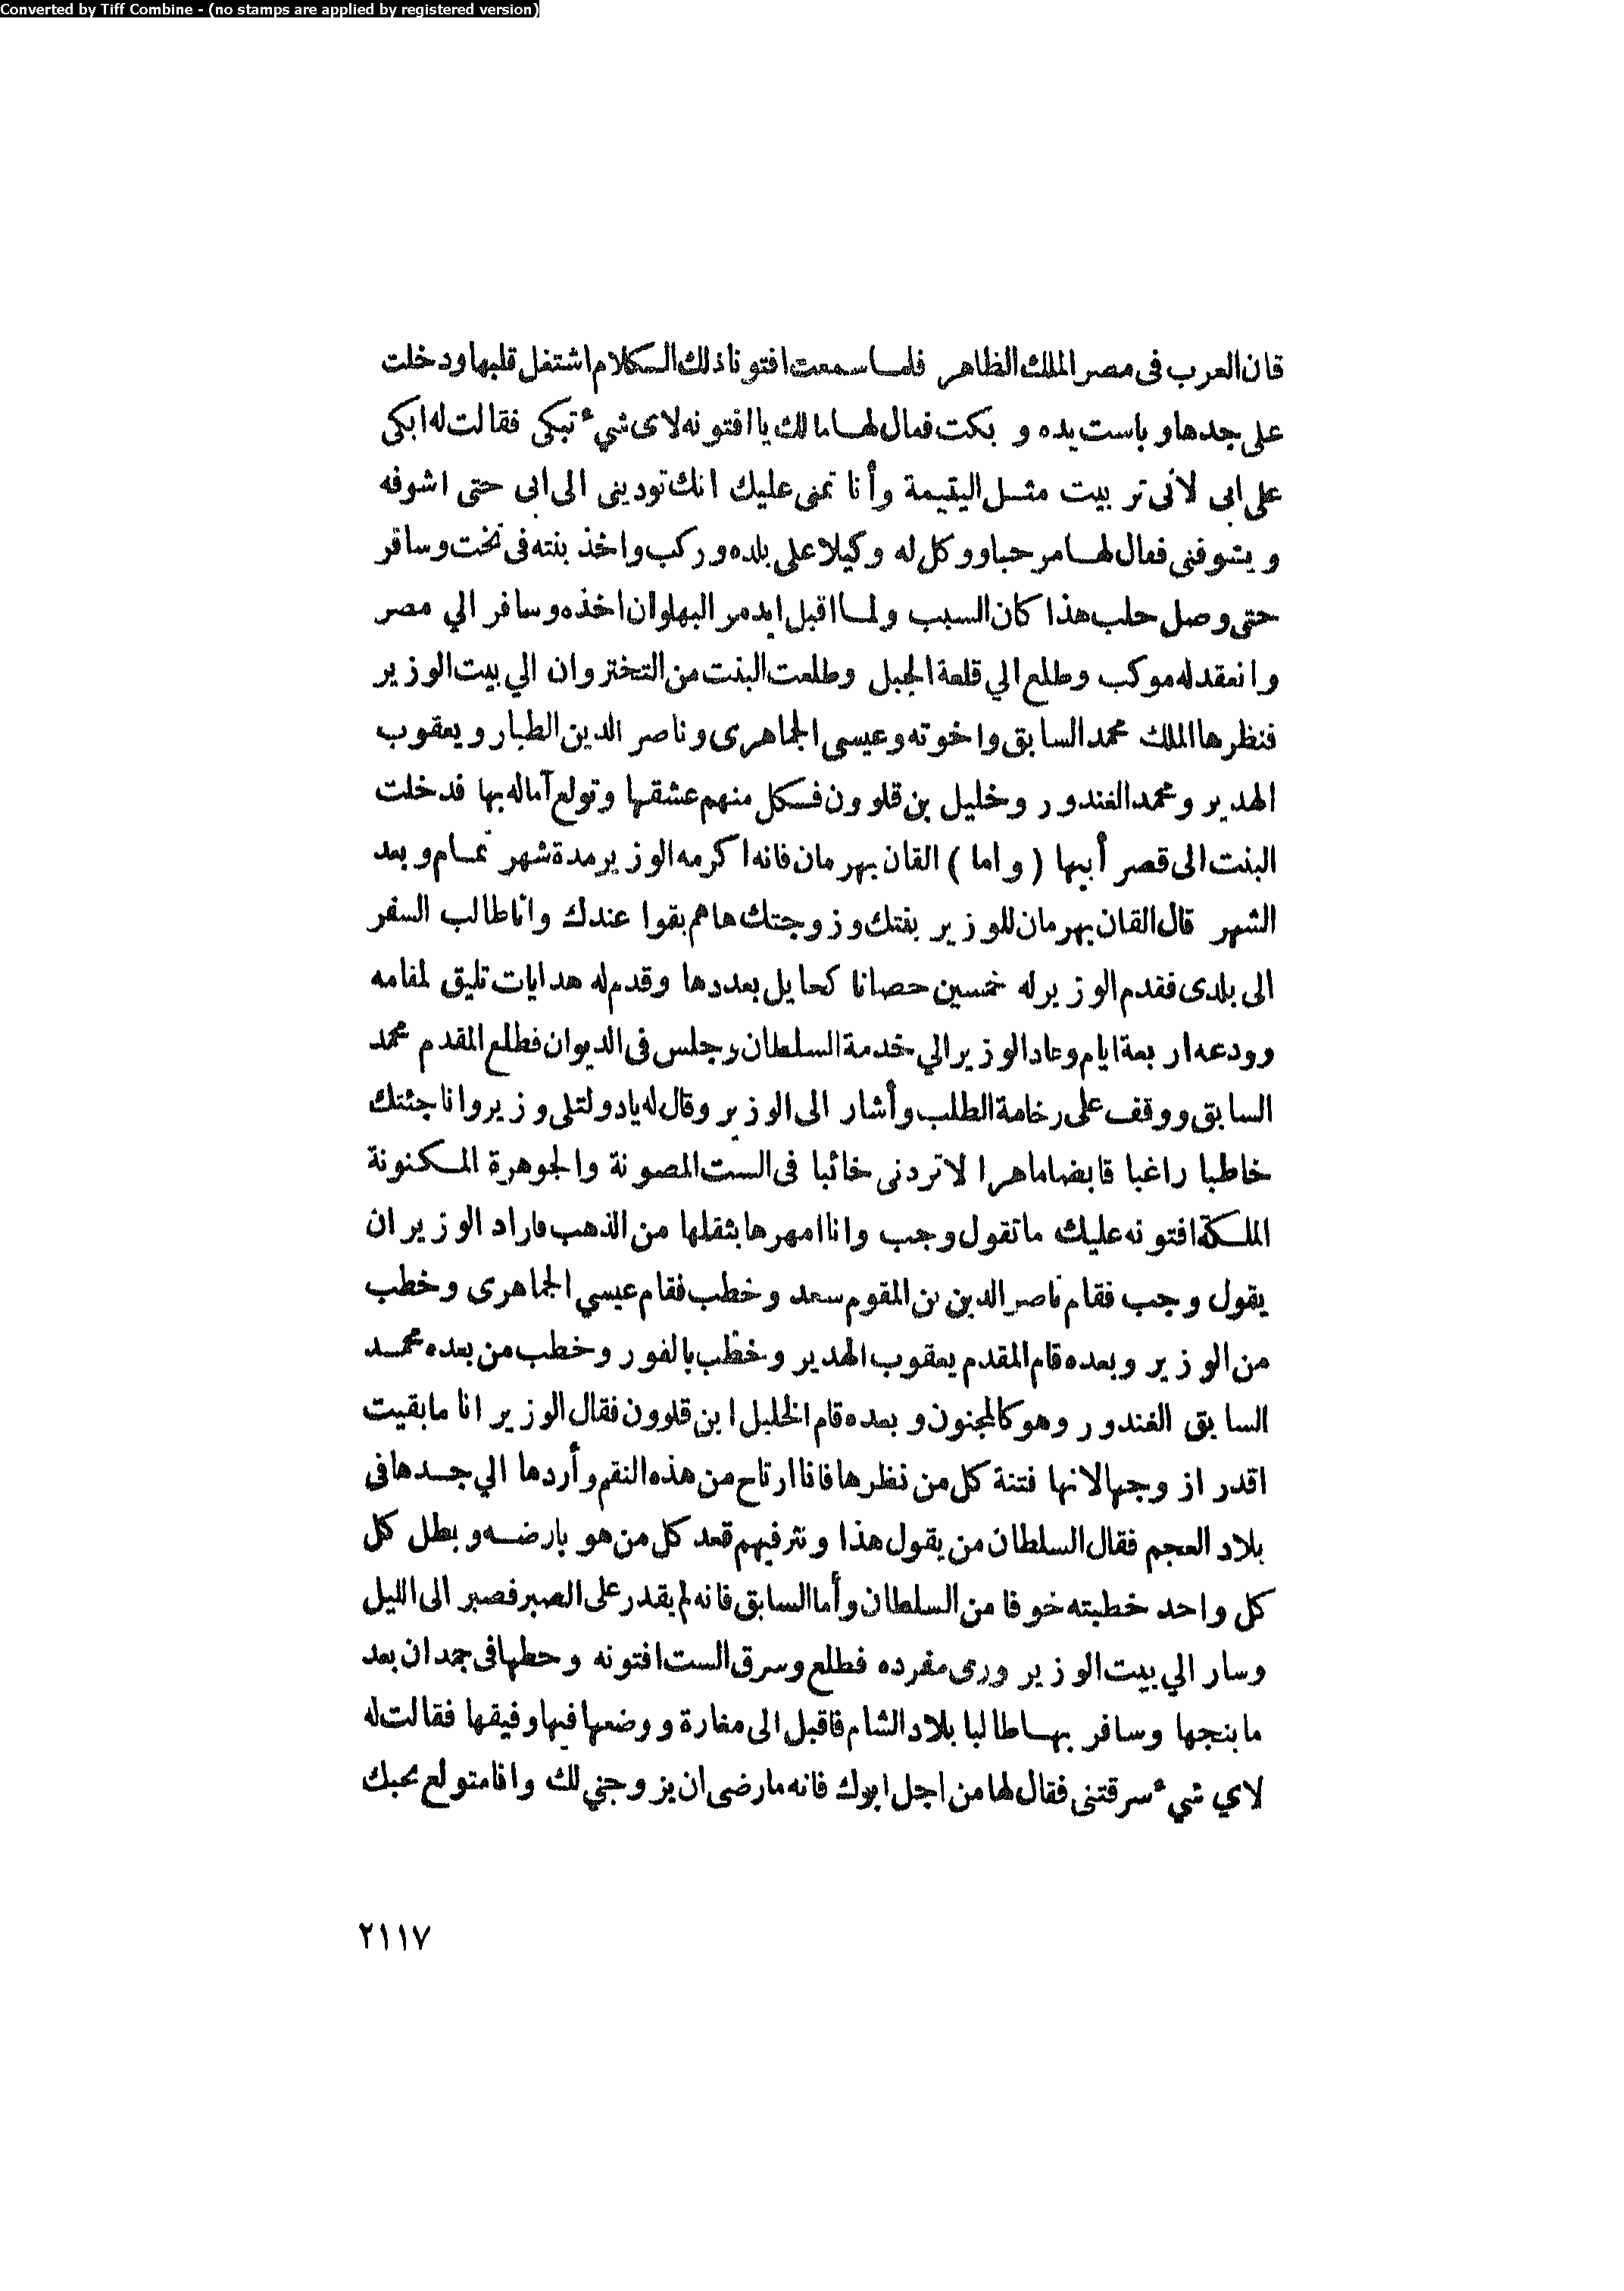 Converted by Tiff Combine - (no stamps are applied by registered version)
قان العرب فى مصر الملك الظاهر فلما سمعت افتونا ذلك الكلام اشتغل قلبها ودخلت
على جدها وباست يده و بكت فقال لها مالك يا افتونه لاى شيء تبكى فقالت له ابكى
على ابى لانى تربيت مثل اليقيمة وأنا تمنى عليك انك تودينى الى ابى حتى اشوفه
ويشوفنى فقال لها مرحبا ووكل له وكيلا على بلده وركب واخذ بنته فى تخت وسافر
حتى وصل حلب هذا كان السبب ولما اقبل ايدمر البهلوان اخذه وسافر الي مصر
وانعقد له موكب وطلع الي قلعة الجبل وطلعت البنت من التختروان الي بيت الوزير
فنظرها الملك محمد السابق واخوته وعيسى الجماهرى وناصر الدين الطيار ويعقوب
الهدير ومحمد الغندور وخليل بن قلوون فكل منهم عشقها وتولع آماله بها فدخلت
البنت الى قصر أبيها ( واما ) القان بهرمان فانه اكرمه الوزير مدة شهر تمام وبعد
الشهر قال القان بهرمان للوزير بنتك وزوجتك هاهم بقوا عندك وانا طالب السفر
الى بلدى فقدم الوزير له خمسين حصانا كحايل بعددها وقدم له هدايات تليق لمقامه
وودعه اربعة ايام وعاد الوزير الي خدمة السلطان وجلس فى الديوان فطلع المقدم محمد
السابق ووقف على رخامة الطلب وأشار الى الوزير وقال له يادولتلى وزير وانا جئتك
خاطبا راغبا قابضا ماهرا لا تردنى خائبا فى الست المصونة والجوهرة المكنونة
الملكة افتونه عليك ما تقول وجب وانا امهرها بثقلها من الذهب فاراد الوزير ان
يقول وجب فقام ناصر الدين بن المقوم سعد وخطب فقام عيسي الجماهرى وخطب
من الوزير وبعده قام المقدم يعقوب الهدير وخطب بالفور وخطب من بعده محمد
السابق الغندور وهو كالمجنون وبعده قام الخليل ابن قلوون فقال الوزير انا ما بقيت
اقدر ازوجها لانها فتنة كل من نظرها فانا ارتاح من هذه النقم وأردها الي جدها فى
بلاد العجم فقال السلطان من يقول هذا ونتر فيهم قعد كل من هو بارضه وبطل كل
كل واحد خطيته خوفا من السلطان وأما السابق فانه لم يقدر على الصبر فصبر الى الليل
وسار الي بيت الوزير ورى مفرده فطلع وسرق الست افتونه وحطها فى جمدان بعد
ما بنجها وسافر بها طالبا بلاد الشام فاقبل الى مغارة ووضعها فيها وفيقها فقالت له
لاي شيء سرقتنى فقال لها من اجل ابوك فانه مارضى ان يزوجني لك وانا متولع بحبك
٢١١٧